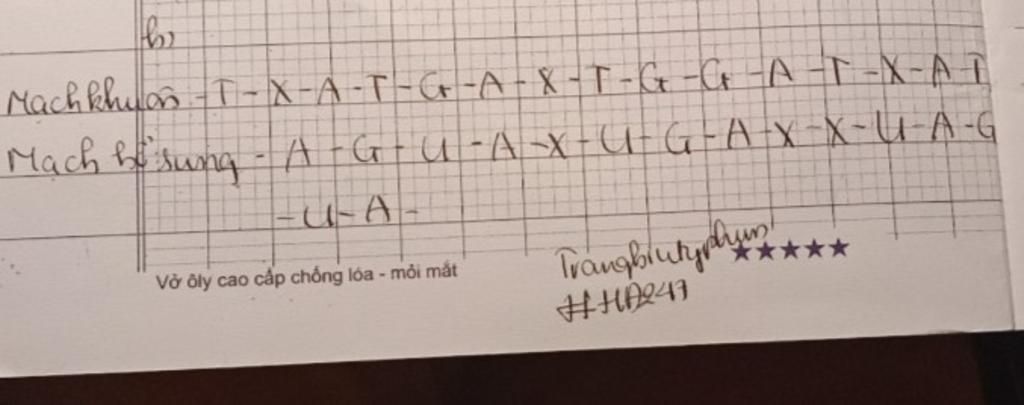 b)
Mạch khuôn - T - X - A - T - G - A - X - T - G - G - A - T - X - A - T
Mạch bổ sung - A - G - U - A - X - U - G - A - X - X - U - A - G
- U - A -
Vở ôly cao cấp chống lóa - mỏi mắt
Trangbiutyphun ★★★★★
#HA247